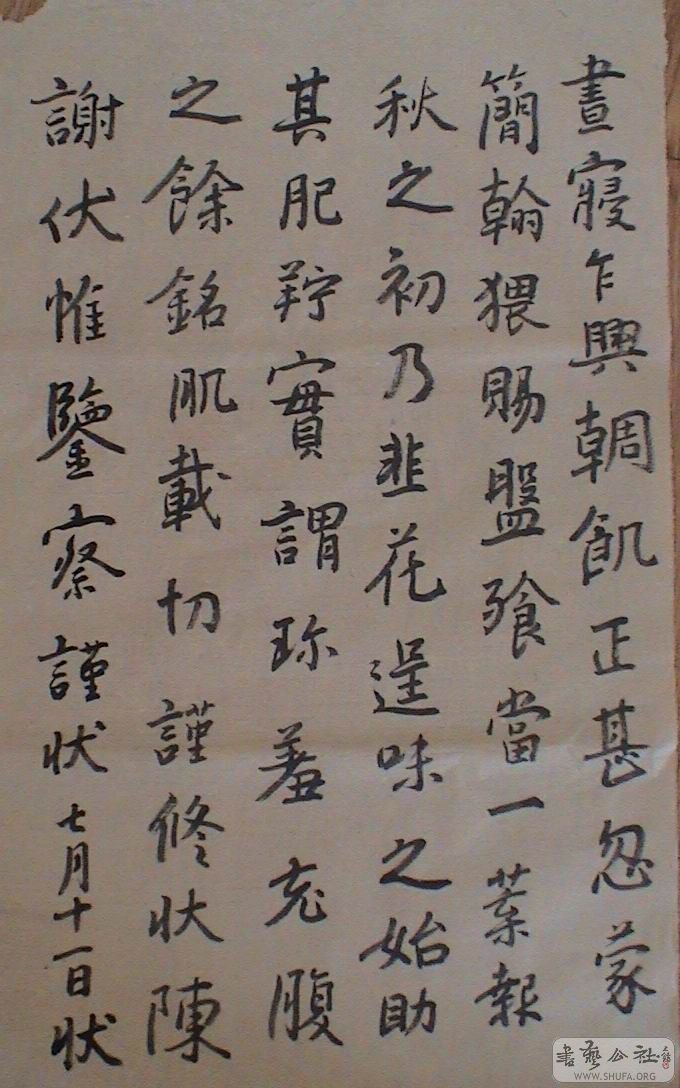 晝寢乍興輖飢正甚忽蒙
簡翰猥賜盤飧當一葉報
秋之初乃韭花逞味之始助
其肥羜實謂珍羞充腹
之餘銘肌載切謹修狀陳
謝伏惟鑒察謹狀七月十一日狀
書藝公社
WWW.SHUFA.ORG